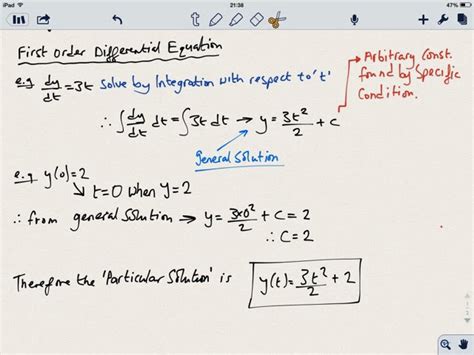 iPad 21:38 47%
First Order Differential Equation
e.g dy/dt = 3t Solve by Integration with respect to 't'
→ Arbitrary Const. found by Specific Condition.
∴ ∫ dy/dt dt = ∫ 3t dt → y = 3t²/2 + c
general solution
e.g y(0)=2
t=0 when y=2
∴ from general solution → y = 3x0²/2 + C = 2
∴ C = 2
Therefore the 'Particular Solution' is y(t) = 3t²/2 + 2